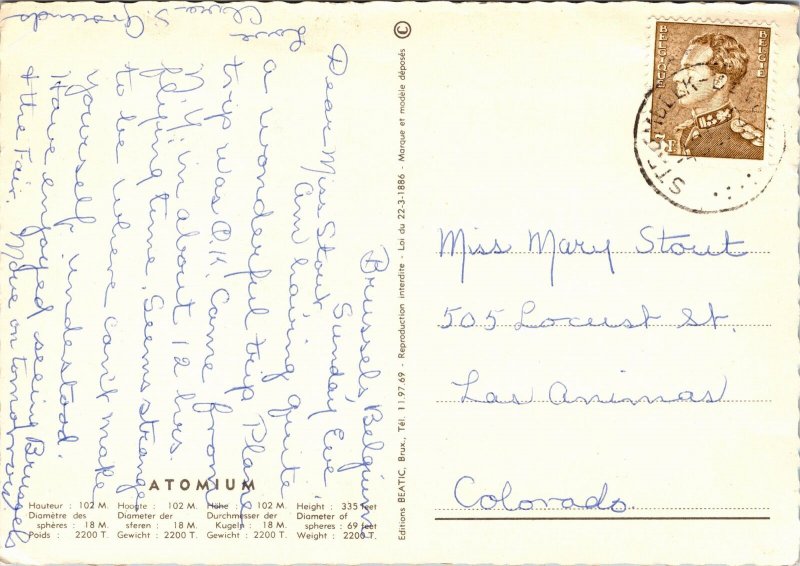 Brussels, Belgium
Sunday Eve.
Dear Miss Stout,
Am having quite
a wonderful trip. Plane
trip was O.K. Came from
N.Y. in about 12 hrs.
flying time. Seems strange
to be where can't make
yourself understood.
Have enjoyed seeing Brussels
& the Fair. Move on tomorrow.
Love
S. Grounds
ATOMIUM
Hauteur : 102 M.
Diamètre des
sphères : 18 M.
Poids : 2200 T.
Hoogte : 102 M.
Diameter der
sferen : 18 M.
Gewicht : 2200 T.
Höhe : 102 M.
Durchmesser der
Kugeln : 18 M.
Gewicht : 2200 T.
Height : 335 feet
Diameter of
spheres : 69 feet
Weight : 2200 T.
Editions BEATIC, Brux., Tél. 11.97.69 - Reproduction interdite - Loi du 22-3-1886 - Marque et modèle déposés ©
BELGIQUE
BELGIE
Miss Mary Stout
505 Locust St.
Las Animas
Colorado.